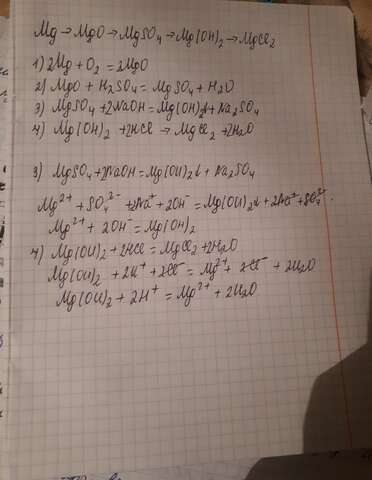 Mg→MgO→MgSO₄→Mg(OH)₂→MgCl₂
1) 2Mg + O₂ = 2MgO
2) MgO + H₂SO₄ = MgSO₄ + H₂O
3) MgSO₄ + 2NaOH = Mg(OH)₂↓ + Na₂SO₄
4) Mg(OH)₂ + 2HCl → MgCl₂ + 2H₂O
3) MgSO₄ + 2NaOH = Mg(OH)₂↓ + Na₂SO₄
Mg²⁺ + SO₄²⁻ + 2Na⁺ + 2OH⁻ = Mg(OH)₂↓ + 2Na⁺ + SO₄²⁻
Mg²⁺ + 2OH⁻ = Mg(OH)₂
4) Mg(OH)₂ + 2HCl = MgCl₂ + 2H₂O
Mg(OH)₂ + 2H⁺ + 2Cl⁻ = Mg²⁺ + 2Cl⁻ + 2H₂O
Mg(OH)₂ + 2H⁺ = Mg²⁺ + 2H₂O